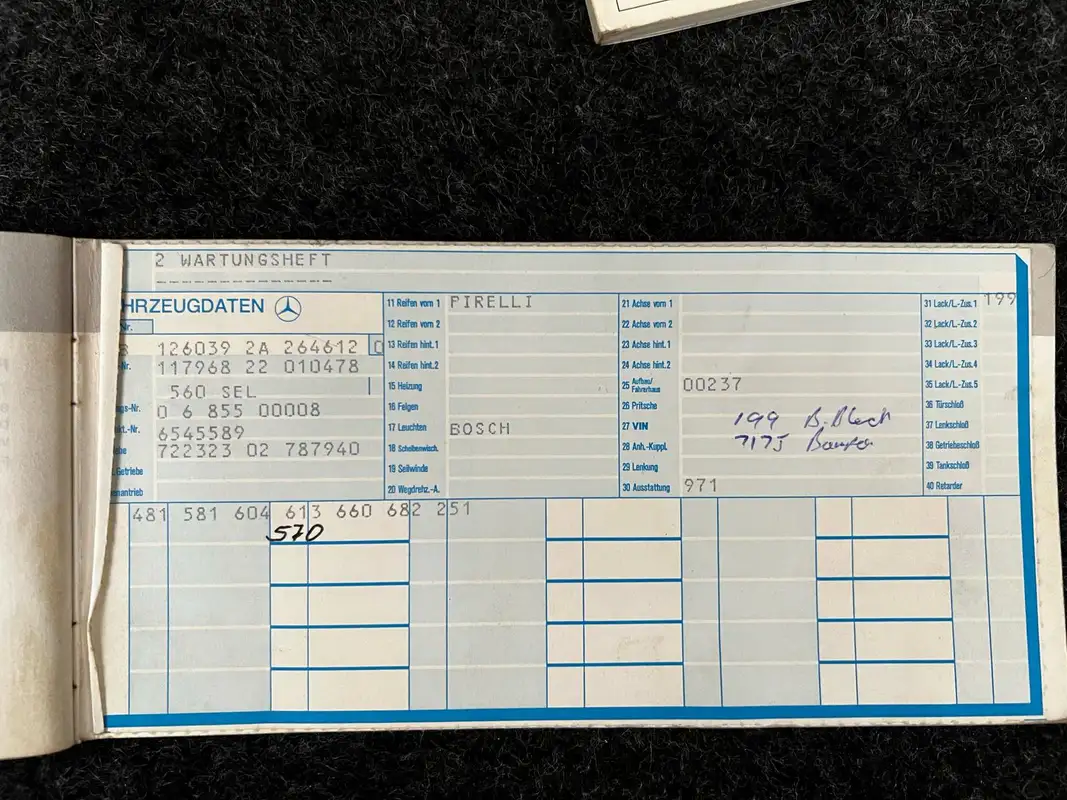 2 WARTUNGSHEFT
HRZEUGDATEN
Nr.
126039 2A 264612
Nr. 117968 22 010478
560 SEL
gs-Nr. 0 6 855 00008
kt.-Nr. 6545589
722323 02 787940
Getriebe
enantrieb
11 Reifen vorn 1 PIRELLI
12 Reifen vorn 2
13 Reifen hint.1
14 Reifen hint.2
15 Heizung
16 Felgen
17 Leuchten BOSCH
18 Scheibenwisch.
19 Seilwinde
20 Wegdrehz.-A.
21 Achse vorn 1
22 Achse vorn 2
23 Achse hint.1
24 Achse hint.2
25 Aufbau/Fahrerhaus 00237
26 Pritsche
27 VIN
28 Anh.-Kuppl.
29 Lenkung
30 Ausstattung 971
199
7175
31 Lack/L.-Zus.1 199
32 Lack/L.-Zus.2
33 Lack/L.-Zus.3
34 Lack/L.-Zus.4
35 Lack/L.-Zus.5
36 Türschloß
37 Lenkschloß
38 Getriebeschloß
39 Tankschloß
40 Retarder
481 581 604 613 660 682 251
570